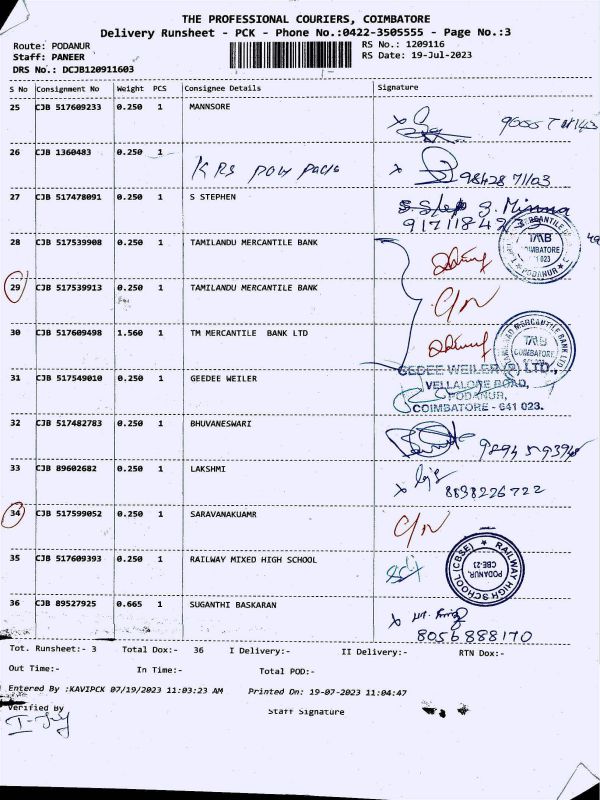 THE PROFESSIONAL COURIERS, COIMBATORE
Delivery Runsheet - PCK - Phone No.:0422-3505555 - Page No.:3
Route: PODANUR
RS No.: 1209116
Staff: PANEER
RS Date: 19-Jul-2023
DRS No.: DCJB120911603
S No Consignment No Weight PCS Consignee Details Signature
25 CJB 517609233 0.250 1 MANNSORE
26 CJB 1360483 0.250 1 KRS Poly packs
9842871103
27 CJB 517478091 0.250 1 S STEPHEN
28 CJB 517539908 0.250 1 TAMILANDU MERCANTILE BANK
TMB
29 CJB 517539913 0.250 1 TAMILANDU MERCANTILE BANK C/N
30 CJB 517609498 1.560 1 TM MERCANTILE BANK LTD
31 CJB 517549010 0.250 1 GEEDEE WEILER
GEDEE WEILER (P) LTD.,
VELLALORE ROAD,
PODANUR,
COIMBATORE - 641 023.
32 CJB 517482783 0.250 1 BHUVANESWARI
33 CJB 89602682 0.250 1 LAKSHMI
8838226722
34 CJB 517599052 0.250 1 SARAVANAKUAMR C/N
35 CJB 517609393 0.250 1 RAILWAY MIXED HIGH SCHOOL
RAILWAY HIGH SCHOOL (CBSE)
PODANUR,
CBE-23
36 CJB 89527925 0.665 1 SUGANTHI BASKARAN
8056888170
Tot. Runsheet:- 3 Total Dox:- 36 I Delivery:- II Delivery:- RTN Dox:-
Out Time:- In Time:- Total POD:-
Entered By :KAVIPCK 07/19/2023 11:03:23 AM Printed On: 19-07-2023 11:04:47
Verified By
Staff Signature